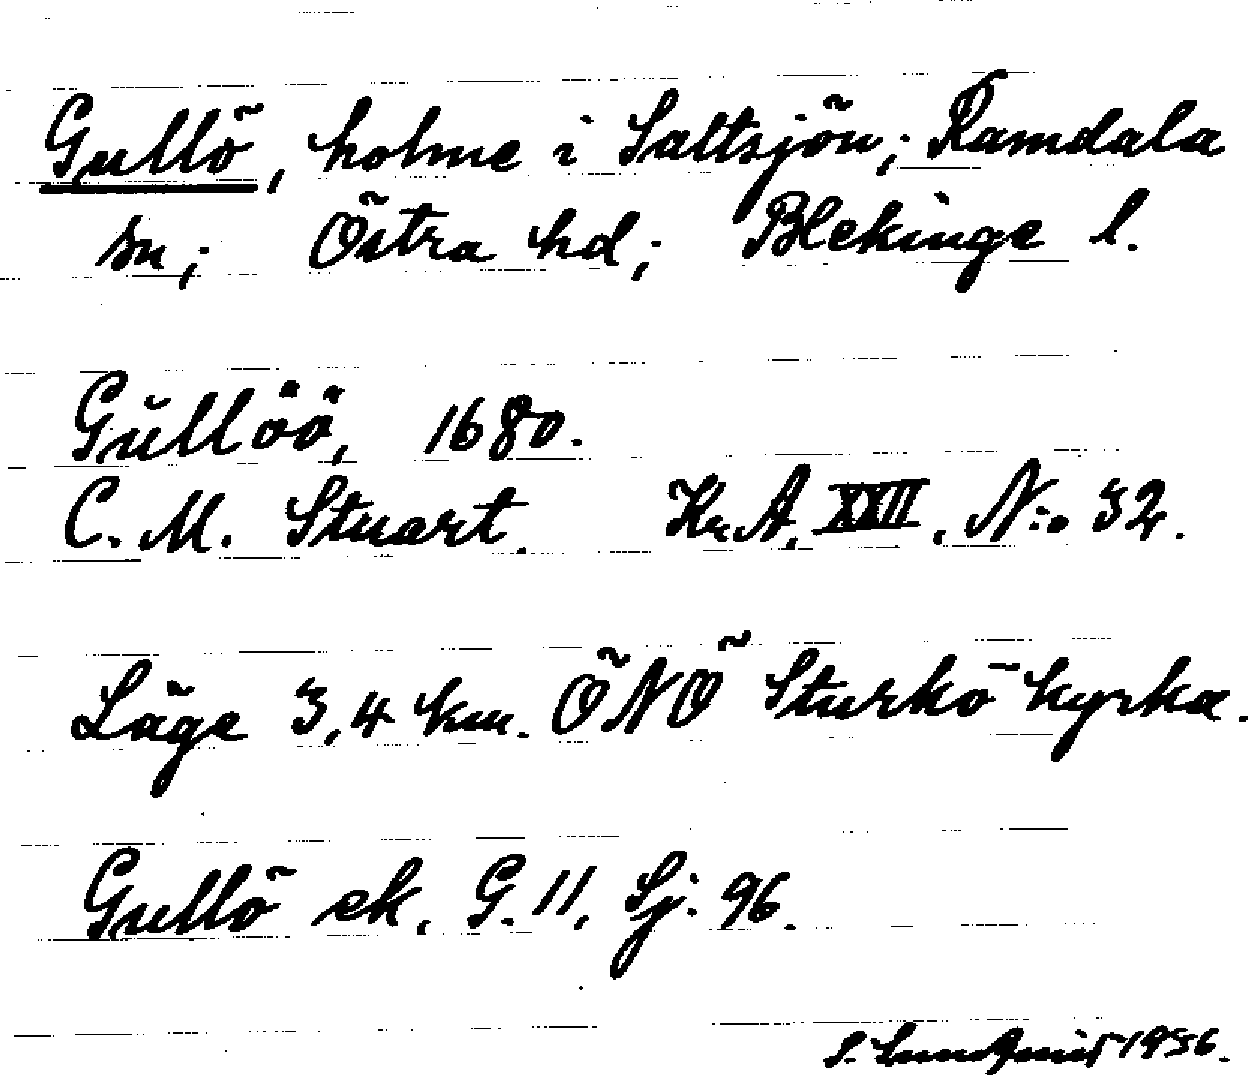 Gullö, holme i Saltsjön; Ramdala
sn; Östra hd; Blekinge l.
Gŭllöö, 1680.
C. M. Stuart. Kr.A. XXII, N:o 32.
Läge 3,4 km. ÖNÖ Sturkö kyrka.
Gullö ek. G. 11, Sj: 96.
S. Lundqvist 1956.